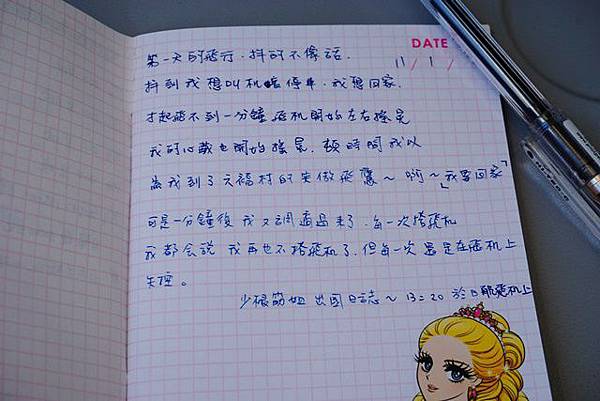 DATE
11 / 1 /
第一天的飛行．抖的不像話．
抖到我想叫机長停車．我想回家．
才起飛不到一分鐘飛机開始左右搖晃
我的心臟也開始搖晃．頓時間我以
為我到了六福村的笑傲飛鷹～啊～「我要回家」
可是一分鐘後我又調適過來了．每一次搭飛机
我都会說 我再也不搭飛机了．但每一次 還是在飛机上
失控。
少根筋姐 出國日誌～ 13:20 於日航飛机上